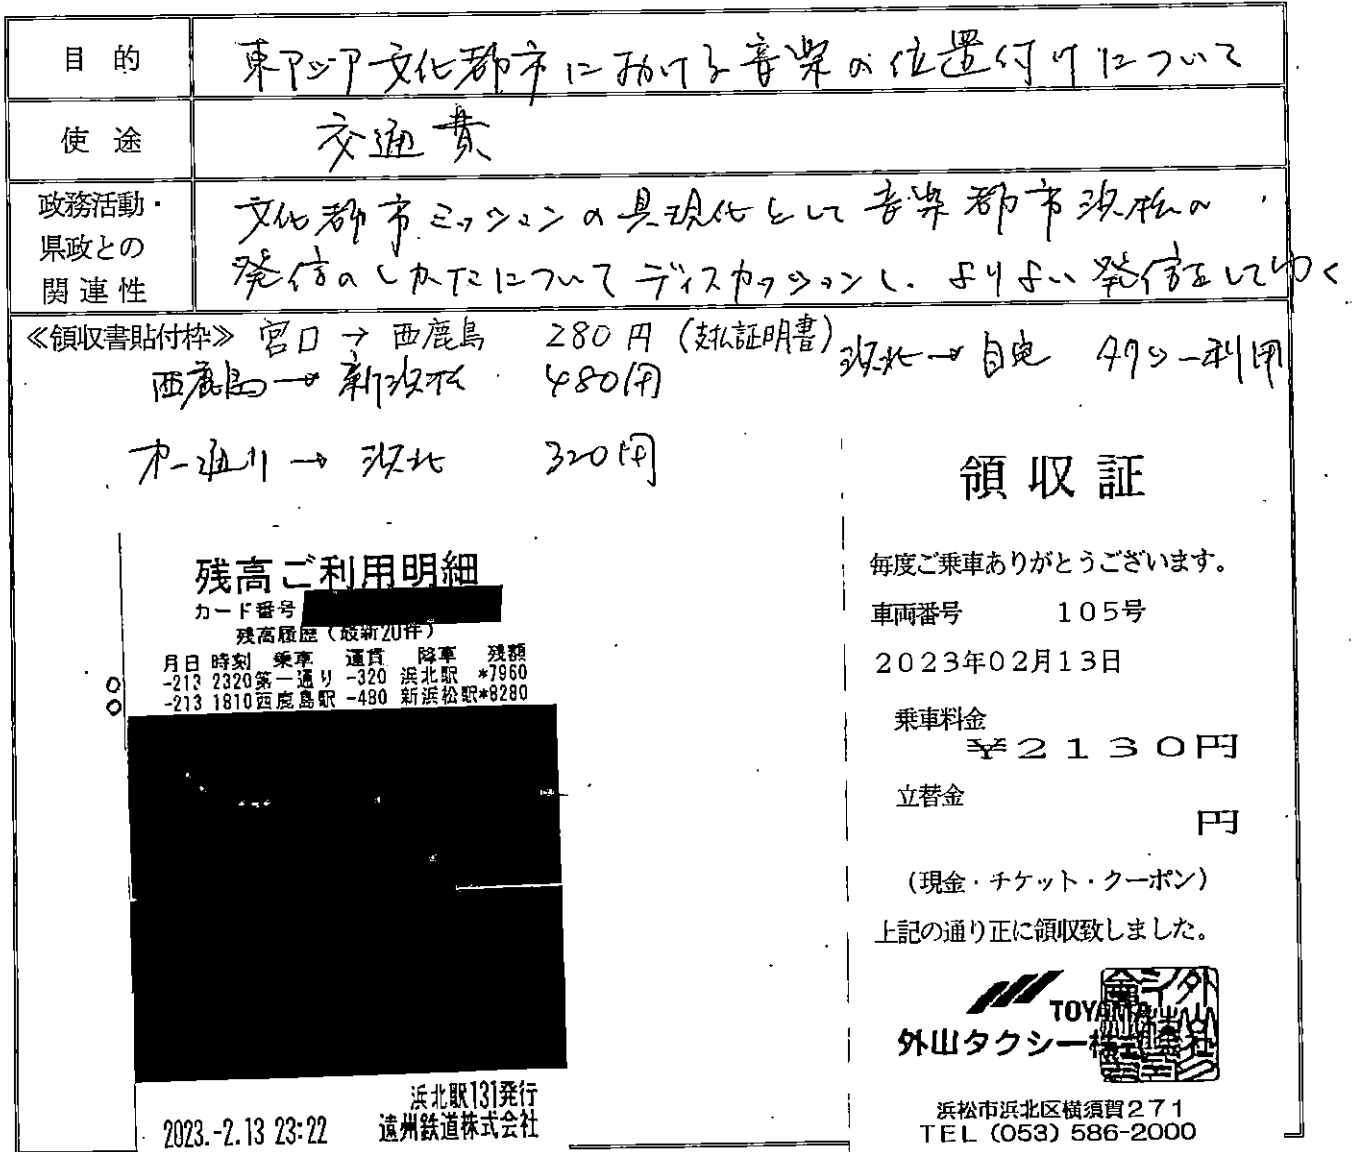 目的
東アジア文化都市における音楽の位置付けについて
使途
交通費
政務活動・
県政との
関連性
文化都市ミッションの具現化として音楽都市浜松の
発信のしかたについてディスカッションし、よりよい発信をしてゆく
≪領収書貼付枠≫ 宮口 → 西鹿島 280円 (支払証明書)
浜北 → 自宅 タクシー利用
西鹿島 → 新浜松 480円
オ一通り → 浜北 320円
残高ご利用明細
カード番号
残高履歴(最新20件)
月日 時刻 乗車 運賃 降車 残額
-213 2320第一通り -320 浜北駅 *7960
-213 1810西鹿島駅 -480 新浜松駅*8280
浜北駅131発行
2023.-2.13 23:22 遠州鉄道株式会社
領収証
毎度ご乗車ありがとうございます。
車両番号 105号
2023年02月13日
乗車料金
¥2130円
立替金
円
(現金・チケット・クーポン)
上記の通り正に領収致しました。
TOYAMA
外山タクシー株式会社
浜松市浜北区横須賀271
TEL (053) 586-2000